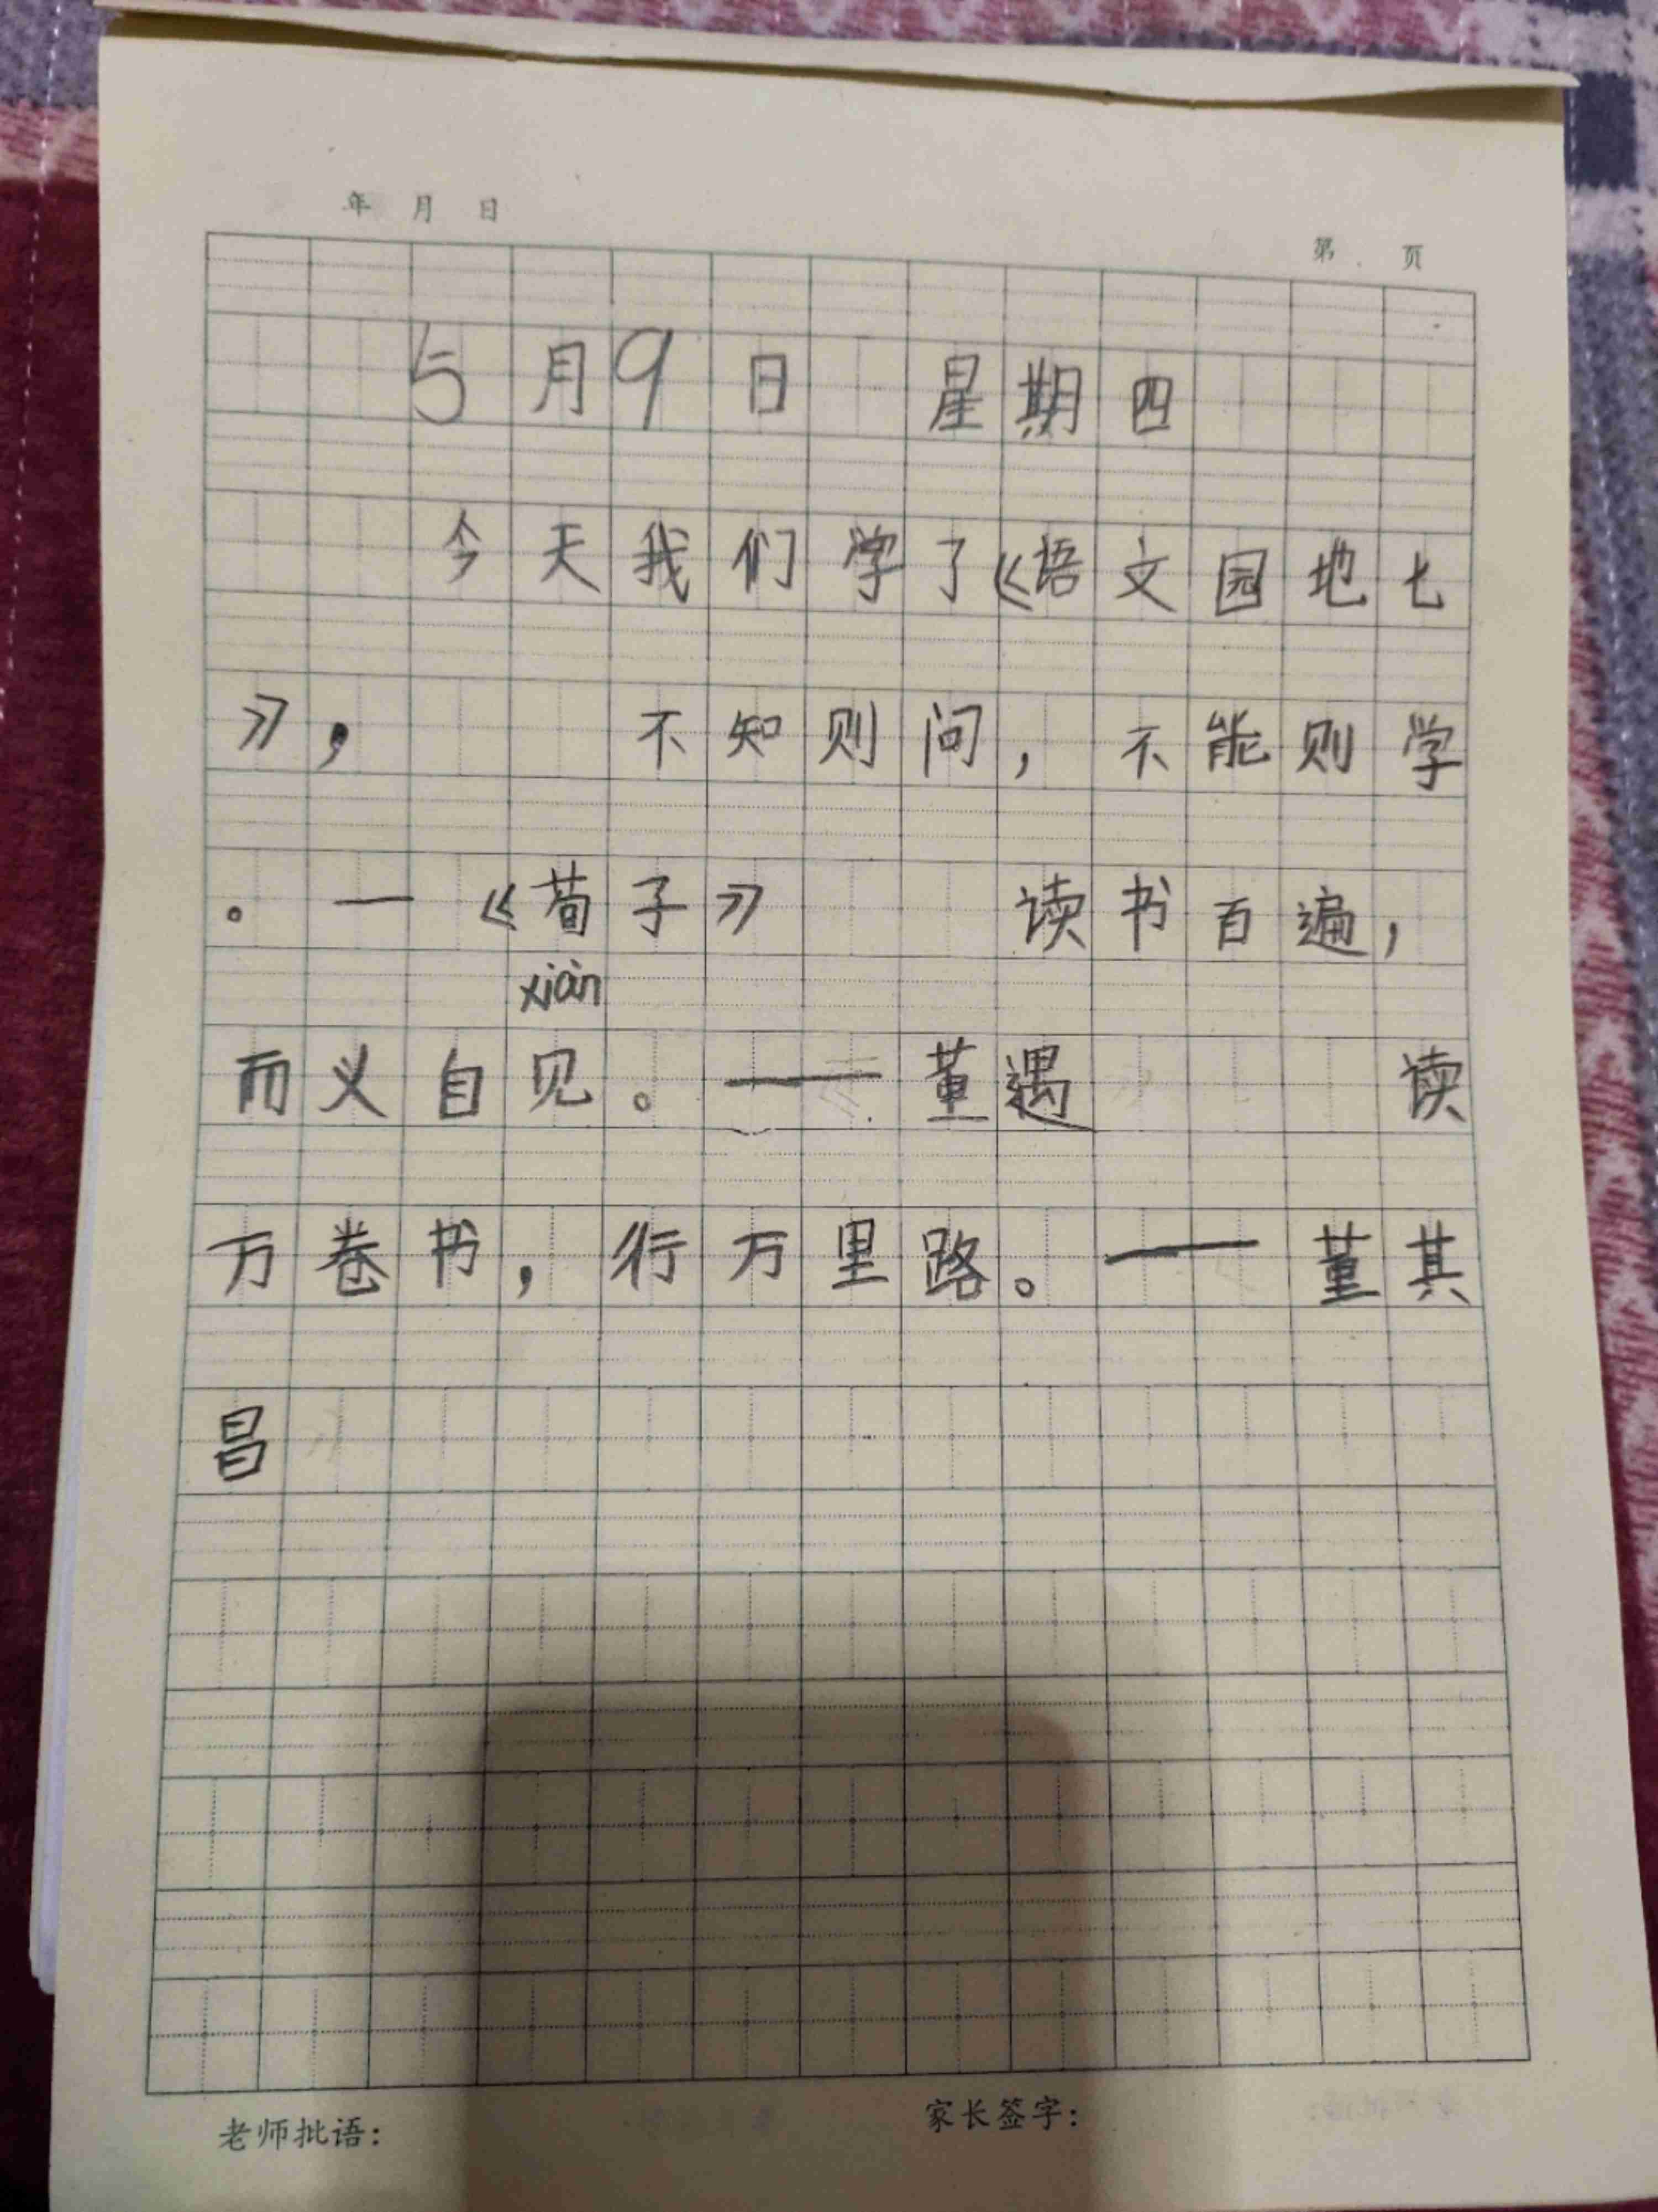 年 月 日
第 页
5月9日 星期四
今天我们学了《语文园地七
》， 不知则问，不能则学
。—《荀子》 读书百遍，
xiàn
而义自见。——董遇 读
万卷书，行万里路。——董其
昌
老师批语：
家长签字：